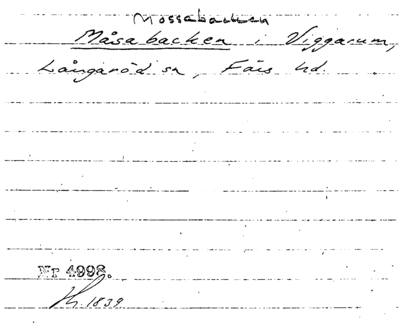 Mossabacken
Måsabacken i Viggarum,
Långaröd sn, Färs hd.
Nr 4998.
1839